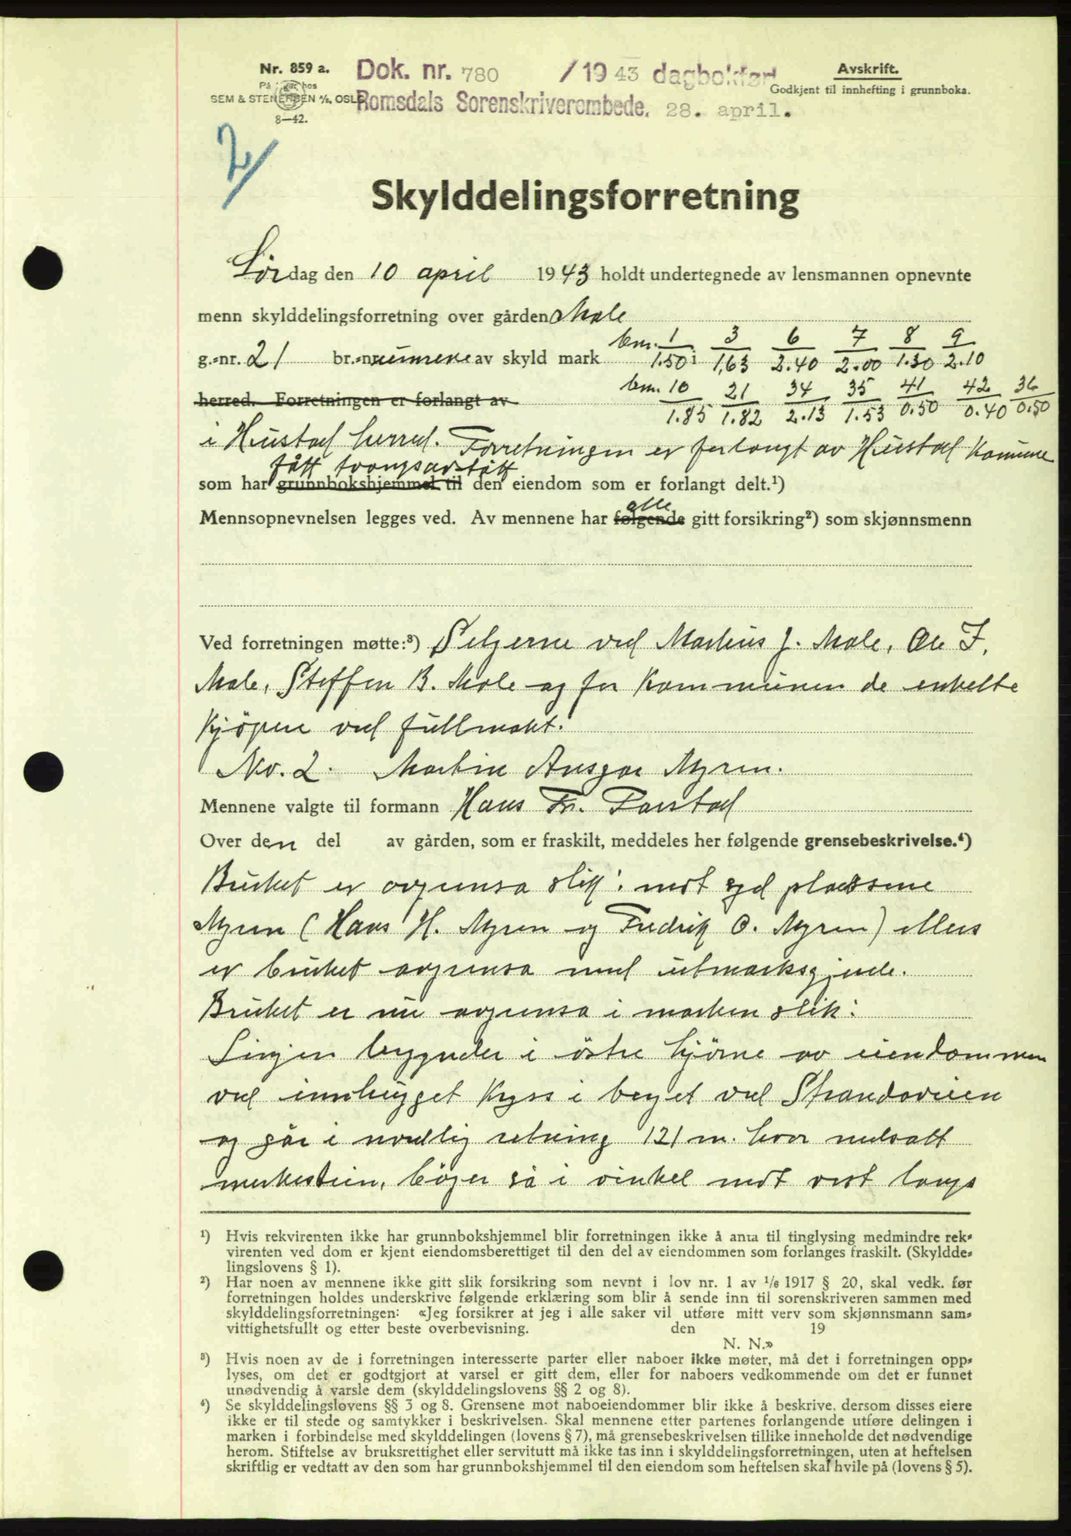 Nr. 859 a.
SEM & STENERSEN A/S, OSLO
8—42.
Dok. nr. 780 /1943 dagbokført
Romsdals Sorenskriverembede, 28. april.
Avskrift.
Godkjent til innhefting i grunnboka.
2/
Skylddelingsforretning
Lørdag den 10 april 1943 holdt undertegnede av lensmannen opnevnte
menn skylddelingsforretning over gården Male
g.-nr. 21 br.-numrene av skyld mark bnr. 1/1.50 i 3/1.63 6/2.40 7/2.00 8/1.30 9/2.10
herred. Forretningen er forlangt av bnr. 10/1.85 21/1.82 34/2.13 35/1.53 41/0.50 42/0.40 36/0.50
i Hustad herred. Forretningen er forlangt av Hustad Komune
fått tvangsavstått
som har grunnbokshjemmel til den eiendom som er forlangt delt.¹)
alle
Mennsopnevnelsen legges ved. Av mennene har følgende gitt forsikring²) som skjønnsmenn
Ved forretningen møtte:³) Selgerne ved Martinus J. Male, Ole F.
Male, Steffen B. Male og for Kommunen de enkelte
Kjöpere ved fullmakt.
No. 2. Martin Ansgar Myren.
Mennene valgte til formann Hans Fr. Tarstad
Over den del av gården, som er fraskilt, meddeles her følgende grensebeskrivelse.⁴)
Bruket er avgrensa slik: mot syd plassene
Myren (Hans H. Myren og Fredrik O. Myren) ellers
er bruket avgrensa med utmarksgjerde.
Bruket er nu avgrensa i marken slik:
Linjen begynder i östre hjörne av eiendommen
ved innhugget Kyss i berget ved Strandaveien
og går i nordlig retning 121 m. hvor nedsatt
merkestein, böyer så i vinkel mot vest langs
¹) Hvis rekvirenten ikke har grunnbokshjemmel blir forretningen ikke å anta til tinglysing medmindre rek-
virenten ved dom er kjent eiendomsberettiget til den del av eiendommen som forlanges fraskilt. (Skyldde-
lingslovens § 1).
²) Har noen av mennene ikke gitt slik forsikring som nevnt i lov nr. 1 av 1/6 1917 § 20, skal vedk. før
forretningen holdes underskrive følgende erklæring som blir å sende inn til sorenskriveren sammen med
skylddelingsforretningen: «Jeg forsikrer at jeg i alle saker vil utføre mitt verv som skjønnsmann sam-
vittighetsfullt og etter beste overbevisning. den 19
N. N.»
³) Hvis noen av de i forretningen interesserte parter eller naboer ikke møter, må det i forretningen opp-
lyses, om det er godtgjort at varsel er gitt dem, eller for naboers vedkommende om det er funnet
unødvendig å varsle dem (skylddelingslovens §§ 2 og 8).
⁴) Se skylddelingslovens §§ 3 og 8. Grensene mot naboeiendommer blir ikke å beskrive, dersom disses eiere
ikke er til stede og samtykker i beskrivelsen. Skal mennene etter partenes forlangende utføre delingen i
marken i forbindelse med skylddelingen (lovens § 7), må grensebeskrivelsen tillike inneholde det nødvendige
herom. Stiftelse av bruksrettighet eller servitutt må ikke tas inn i skylddelingsforretningen, uten at heftelsen
skriftlig er vedtatt av den som har grunnbokshjemmel til den eiendom som heftelsen skal hvile på (lovens § 5).